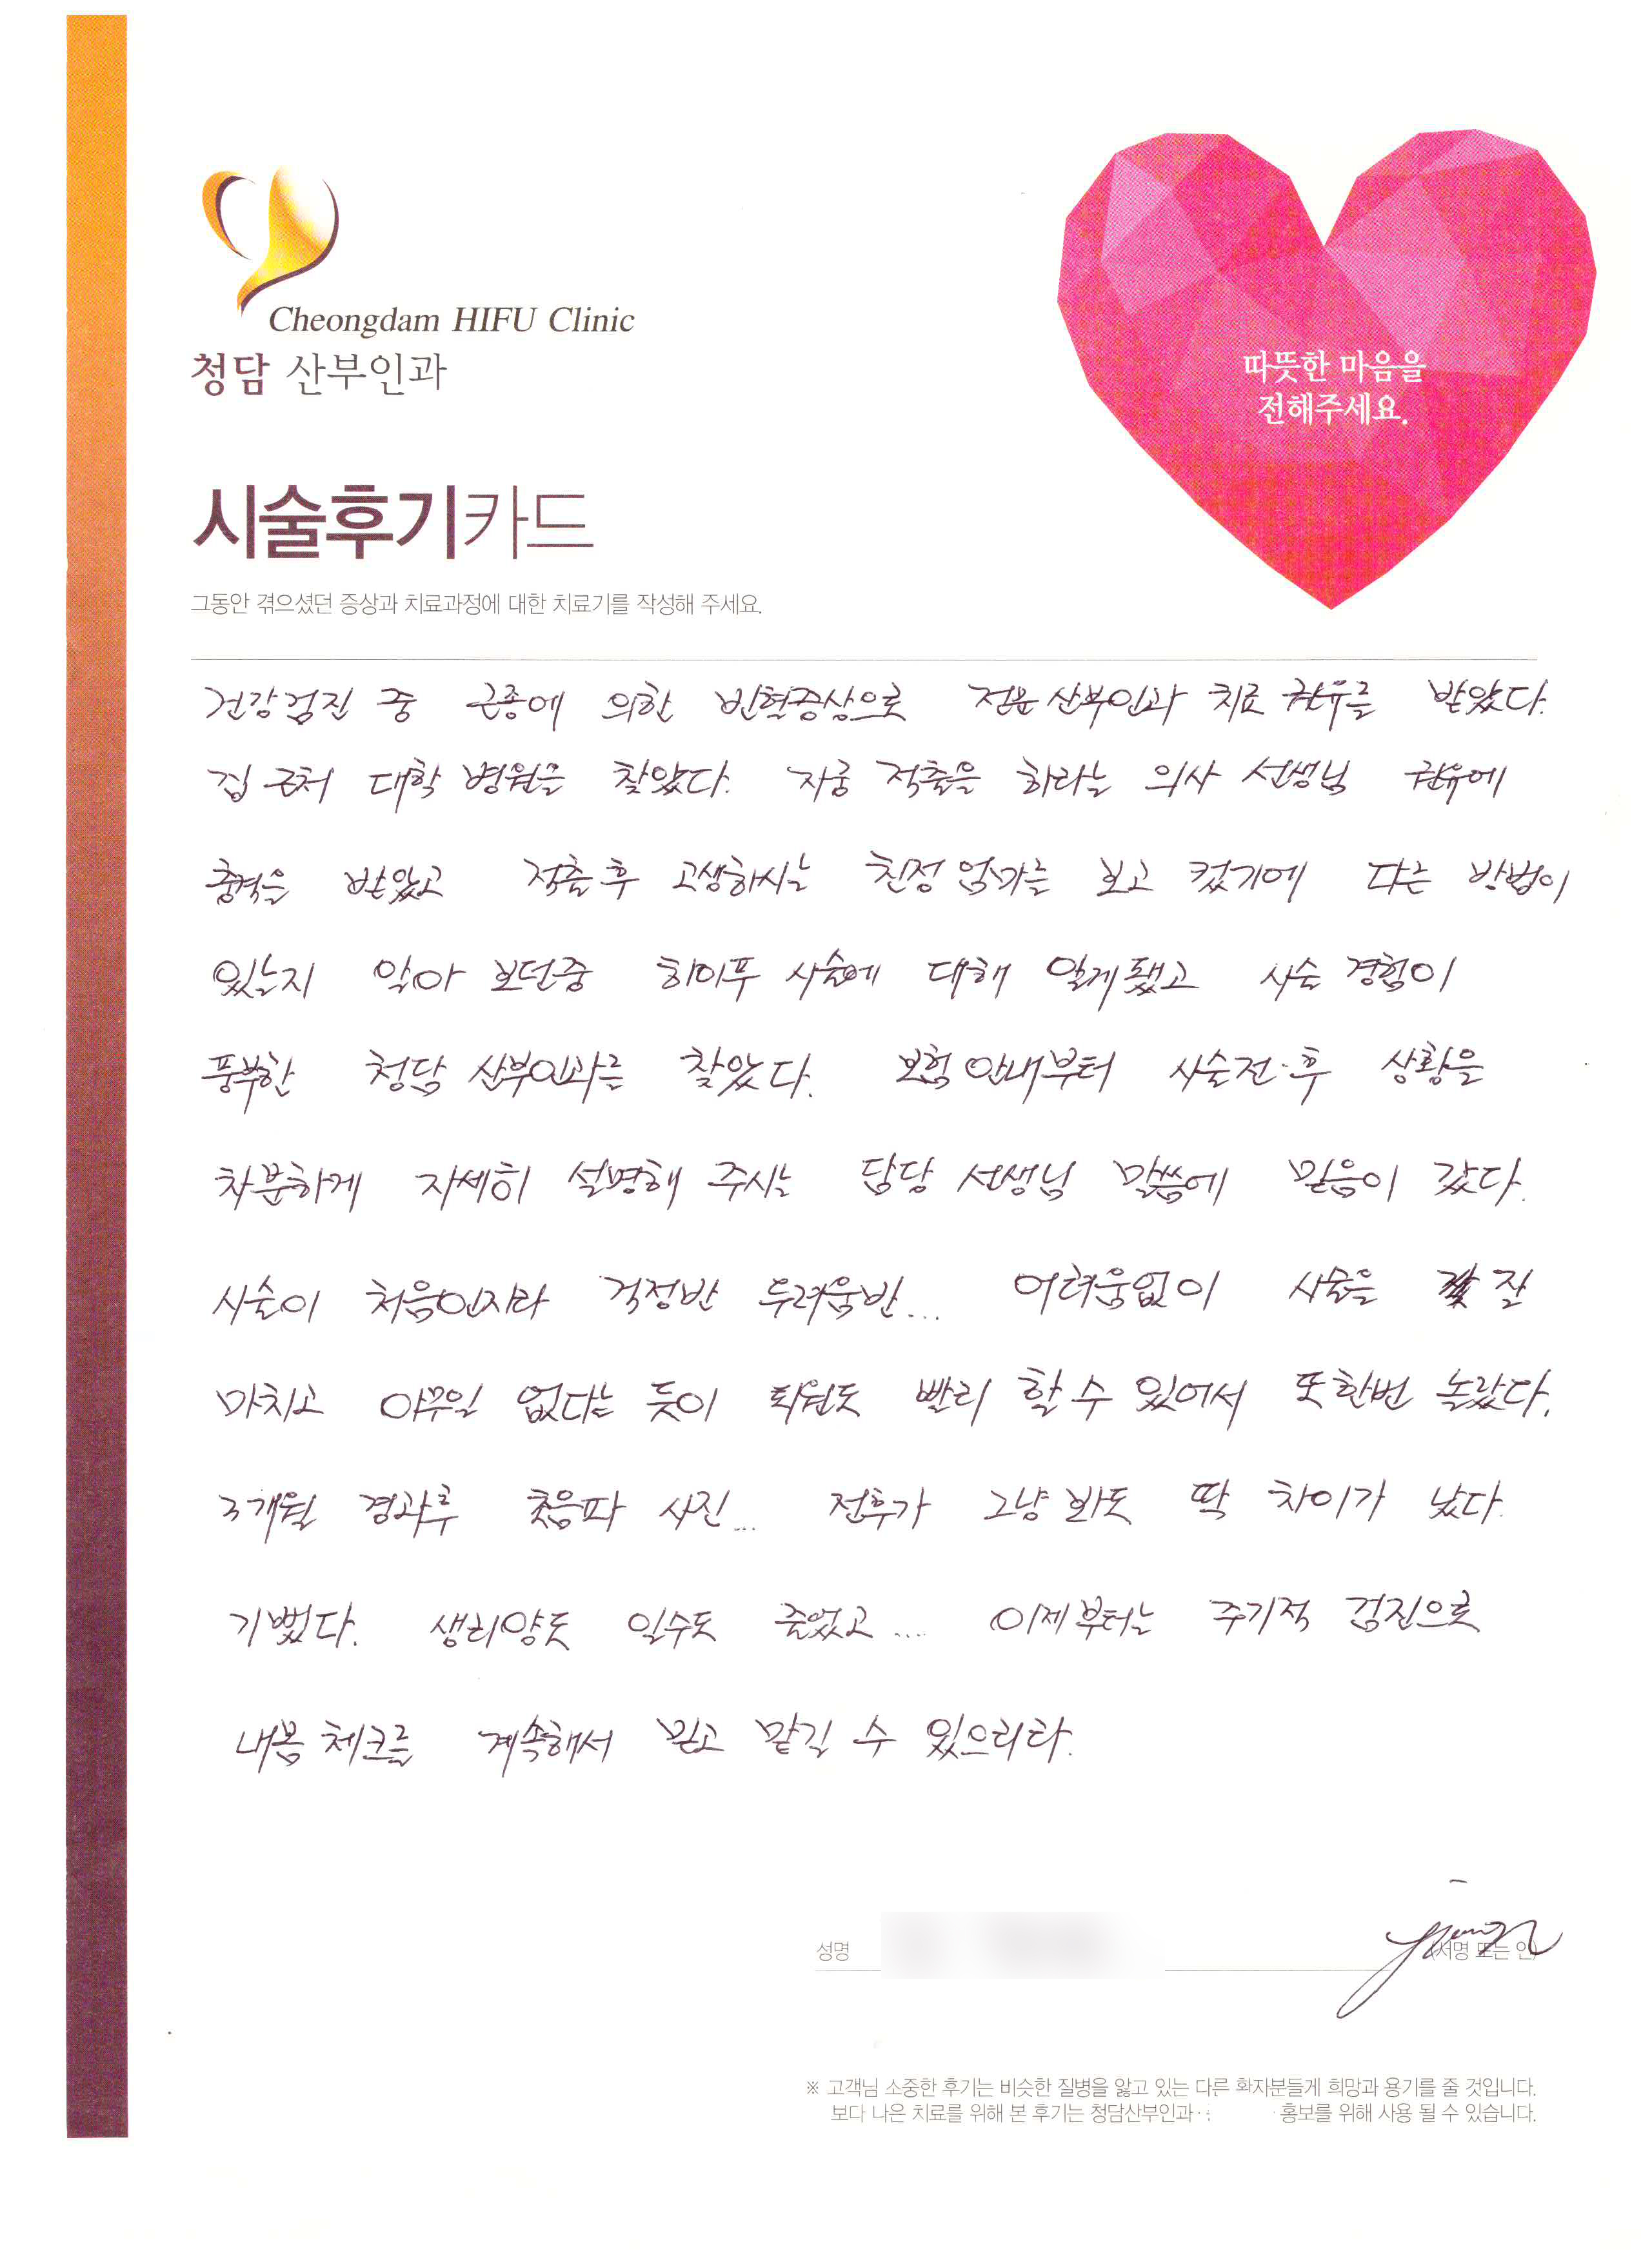 Cheongdam HIFU Clinic
청담 산부인과
따뜻한 마음을
전해주세요.
시술후기카드
그동안 겪으셨던 증상과 치료과정에 대한 치료기를 작성해 주세요.
건강검진 중 근종에 의한 빈혈증상으로 전문 산부인과 치료 권유를 받았다.
집 근처 대학 병원을 찾았다. 자궁 적출을 하라는 의사 선생님 권유에
충격을 받았고 적출 후 고생하시는 친정 엄마를 보고 컸기에 다른 방법이
있는지 알아 보던중 하이푸 시술에 대해 알게됐고 시술 경험이
풍부한 청담 산부인과를 찾았다. 보험 안내부터 시술전·후 상황을
차분하게 자세히 설명해 주시는 담당 선생님 말씀에 믿음이 갔다.
시술이 처음인지라 걱정반 두려움반... 어려움없이 시술을 잘
마치고 아무일 없다는 듯이 퇴원도 빨리 할 수 있어서 또한번 놀랐다.
3개월 경과후 초음파 사진... 전후가 그냥 봐도 딱 차이가 났다.
기뻤다. 생리양도 일수도 줄었고.... 이제부터는 주기적 검진으로
내몸 체크를 계속해서 믿고 맡길 수 있으리라.
성명 (서명 또는 인)
※ 고객님 소중한 후기는 비슷한 질병을 앓고 있는 다른 환자분들게 희망과 용기를 줄 것입니다.
보다 나은 치료를 위해 본 후기는 청담산부인과 홍보를 위해 사용 될 수 있습니다.